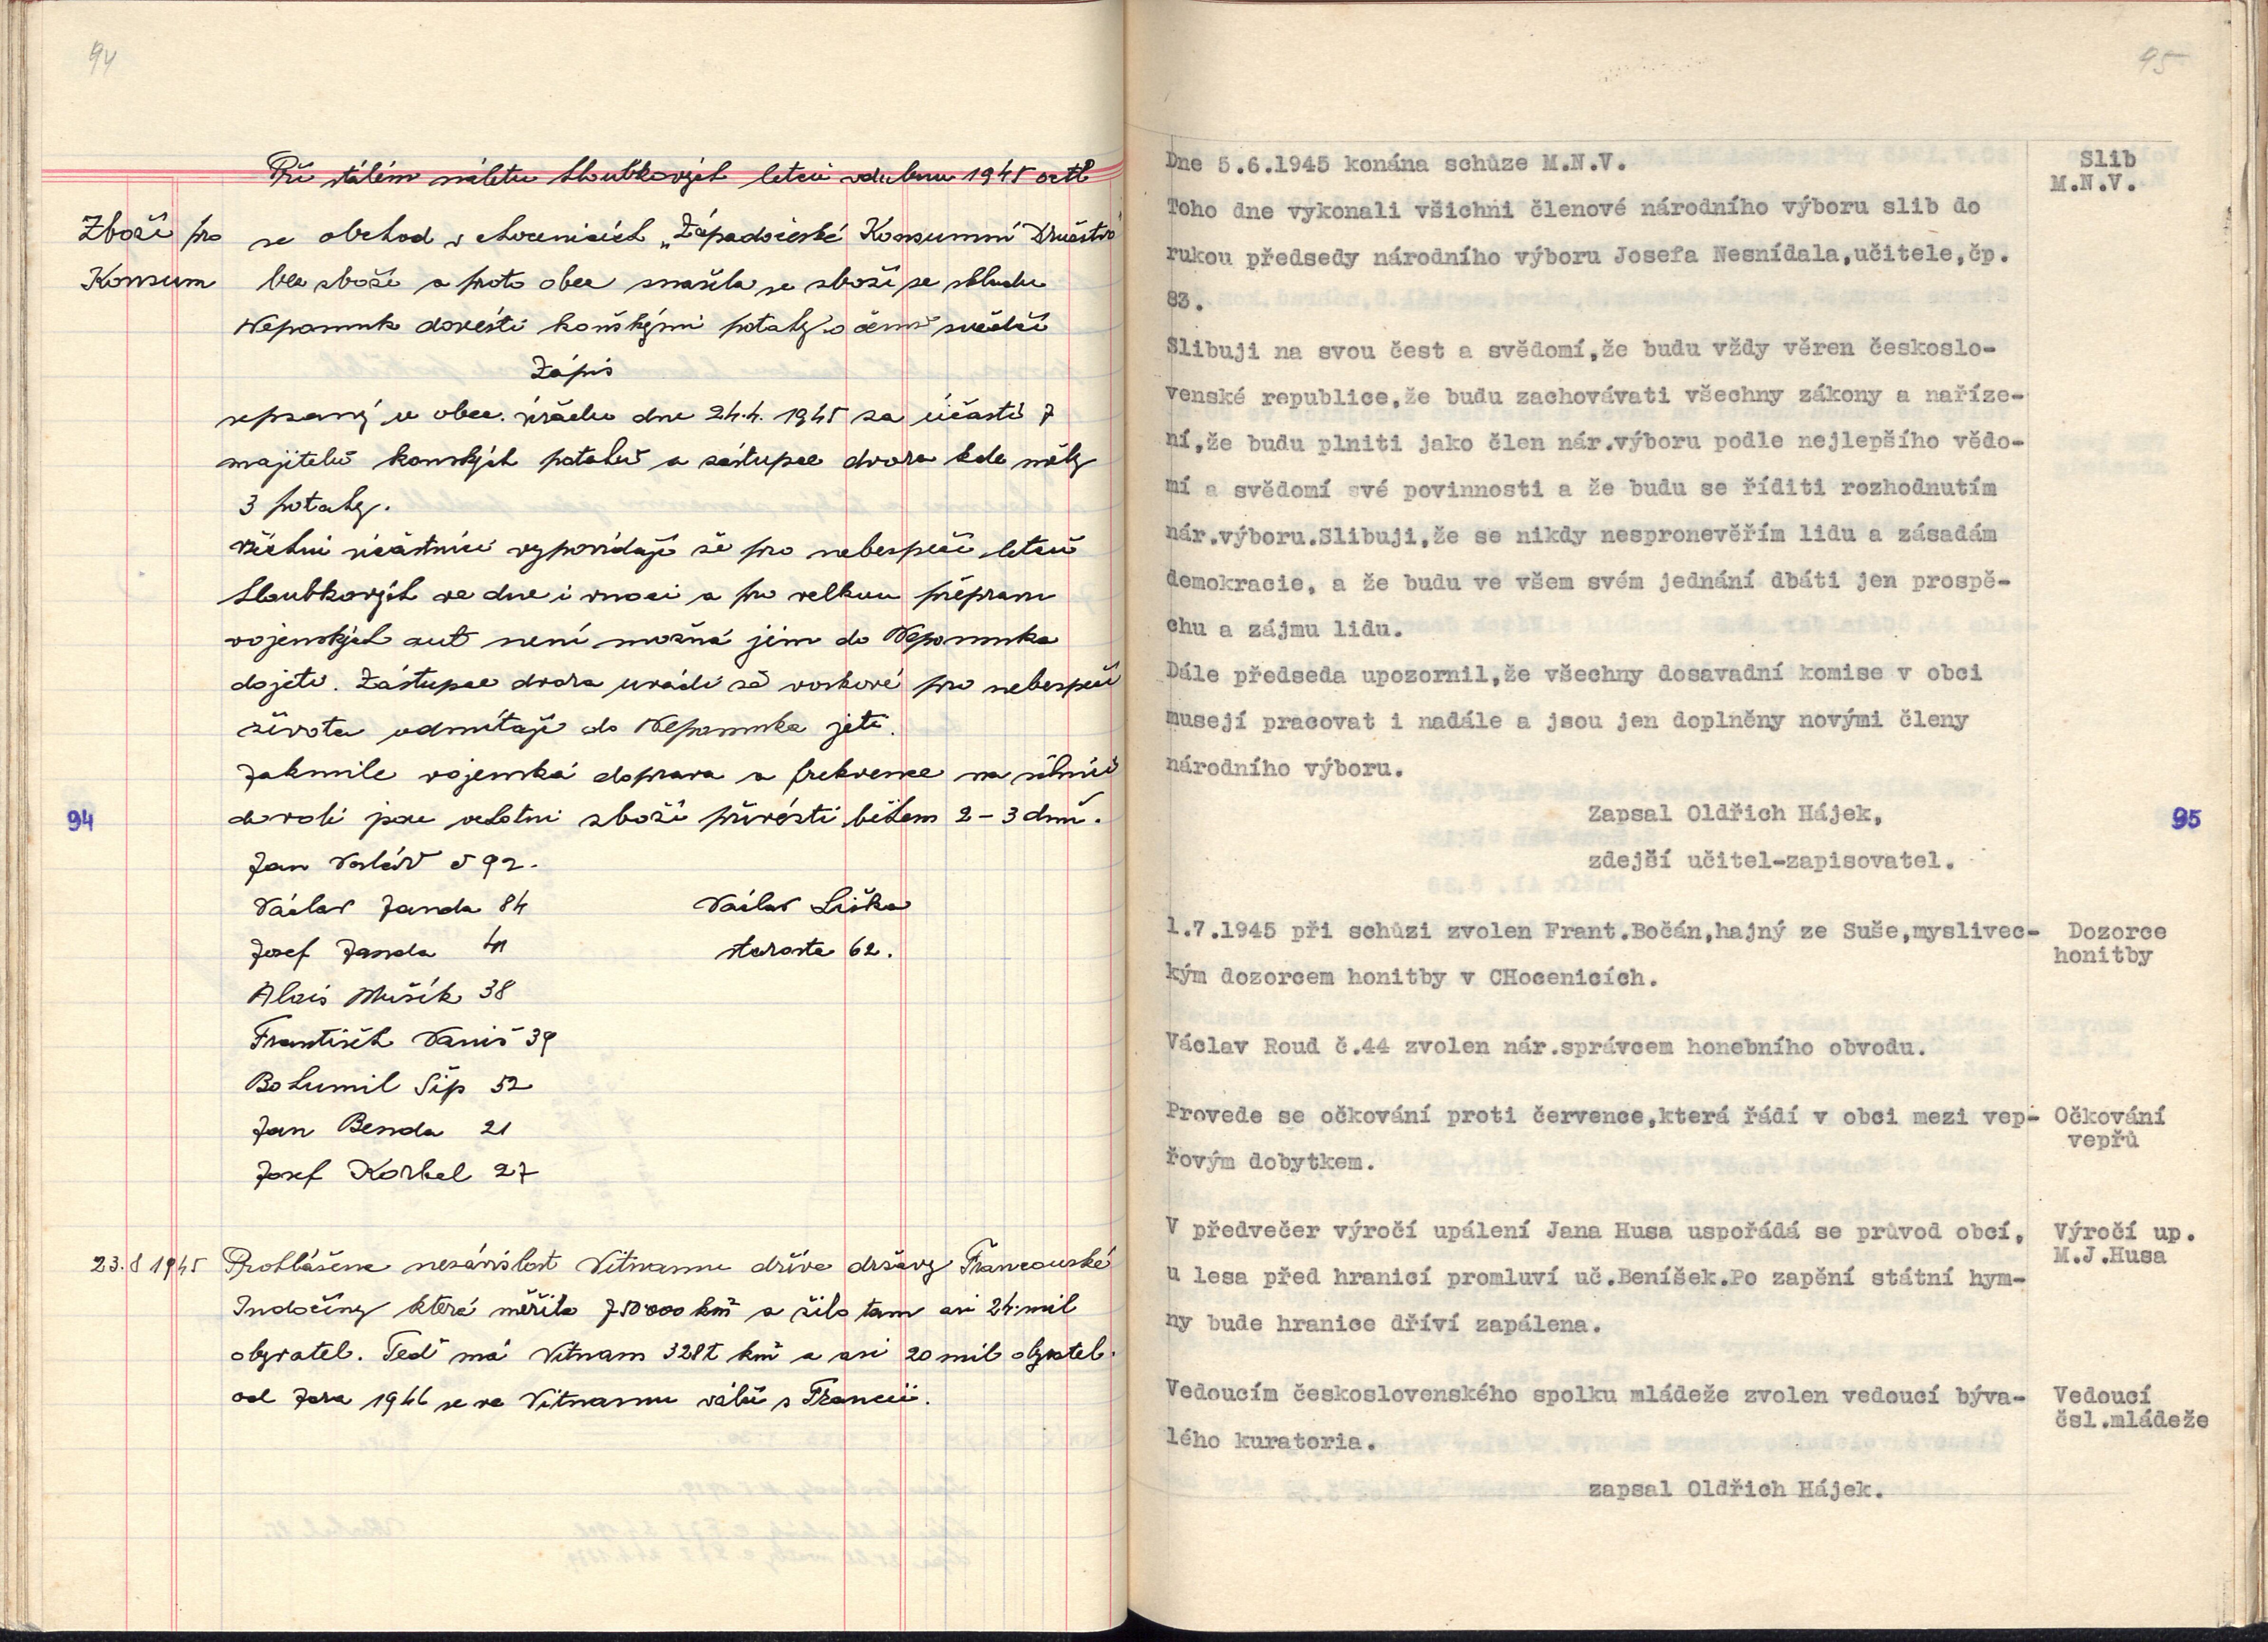 94
Při stálém náletu hloubkových letců v dubnu 1945 octl
Zboží pro
Konsum
se obchod v Chocenicích „Západočeské Konsumní Družstvo
bez zboží a proto obec snažila se zboží ze skladu
Nepomuk dovésti koňskými potahy o čemž svědčí
Zápis
sepsaný v obec. úřadu dne 24.4. 1945 za účasti 7
majitelů konských potahů a zástupce dvora kde měly
3 potahy.
Všichni účástníci vypovídají že pro nebespečí letců
hloubkových ve dne i v noci a pro velkou přepravu
vojenských aut není možná jim do Nepomuka
dojeti. Zástupce dvora uvádí že voskové pro nebespečí
života odmítají do Nepomuka jeti.
Jakmile vojenská doprava a frekvence na silnici
dovolí jsou ochotni zboží přivésti během 2-3 dnů.
94
Jan č 92.
Václav Janda 84
Václav Liška
Josef Janda 41
starosta 62.
Alois Mušík 38
František Vaniš 39
Bohumil Šíp 52
Jan Benda 21
Josef Korbel 27
23.8 1945 Prohlášena nezávislost Vitnamu dříve državy Francouské
Indočíny která měřila 750000 km² a žilo tam asi 24 mil
obyvatel. Teď má Vitnam 328t km² a asi 20 mil obyvatel.
od Jara 1946 se ve Vitnamu válčí s Francií.
95
Dne 5.6.1945 konána schůze M.N.V.
Slib
M.N.V.
Toho dne vykonali všichni členové národního výboru slib do
rukou předsedy národního výboru Josefa Nesnídala,učitele,čp.
83.
Slibuji na svou čest a svědomí,že budu vždy věren českoslo-
venské republice,že budu zachovávati všechny zákony a naříze-
ní,že budu plniti jako člen nár.výboru podle nejlepšího vědo-
mí a svědomí své povinnosti a že budu se říditi rozhodnutím
nár.výboru.Slibuji,že se nikdy nespronevěřím lidu a zásadám
demokracie, a že budu ve všem svém jednání dbáti jen prospě-
chu a zájmu lidu.
Dále předseda upozornil,že všechny dosavadní komise v obci
musejí pracovat i nadále a jsou jen doplněny novými členy
národního výboru.
Zapsal Oldřich Hájek,
95
zdejší učitel-zapisovatel.
1.7.1945 při schůzi zvolen Frant.Bočán,hajný ze Suše,myslivec-
kým dozorcem honitby v CHocenicích.
Dozorce
honitby
Václav Roud č.44 zvolen nár.správcem honebního obvodu.
Provede se očkování proti července,která řádí v obci mezi vep-
řovým dobytkem.
Očkování
vepřů
V předvečer výročí upálení Jana Husa uspořádá se průvod obcí,
u lesa před hranicí promluví uč.Beníšek.Po zapění státní hym-
ny bude hranice dříví zapálena.
Výročí up.
M.J.Husa
Vedoucím československého spolku mládeže zvolen vedoucí býva-
lého kuratoria.
Vedoucí
čsl.mládeže
zapsal Oldřich Hájek.